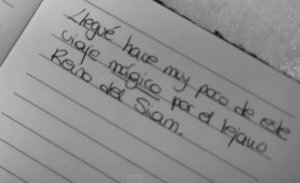 Llegué hace muy poco de este
viaje mágico por el lejano
Reino del Siam.